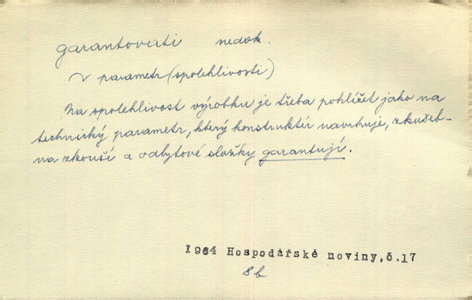 garantovati nedok.
~ parametr (spolehlivosti)
Na spolehlivost výrobku je třeba pohlížet jako na
technický parametr, který konstruktér navrhuje, zkušeb-
na zkouší a odbytové složky garantují.
1964 Hospodářské noviny,č.17
8b